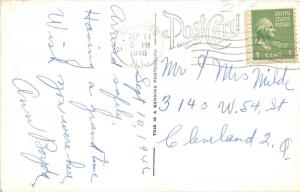 SEP 11
5 PM
1946
Post Card
1 CENT 1
Sept. 10, 1946
Arrived safely.
Having a grand time
Wish you were here
Ann
THIS IS A GENUINE PHOTOGRAPH
Mr & Mrs Milde
3140 W. 54, St
Cleveland 2, O.